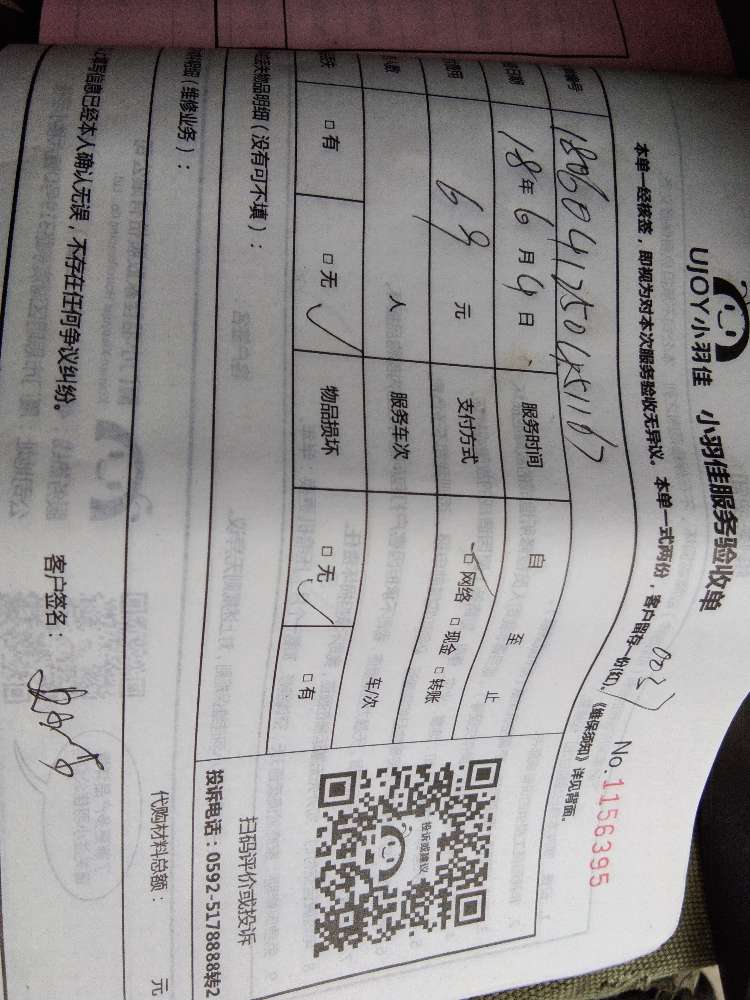 UJOY小羽佳 小羽佳服务验收单
本单一经核签，即视为对本次服务验收无异议。本单一式两份，客户留存一份(红)。《维保须知》详见背面。
No.1156395
编号
日期 18年6月4日 服务时间 自 至 止
69 元 支付方式 □网络 □现金 □转账
人数 人 服务车次 车/次
□有 □无 物品损坏 □无 □有
物品明细（没有可不填）：
投诉或建议
扫码评价或投诉
投诉电话：0592-5178888转2
明细（维修业务）：
代购材料总额： 元
填写信息已经本人确认无误，不存在任何争议纠纷。 客户签名：